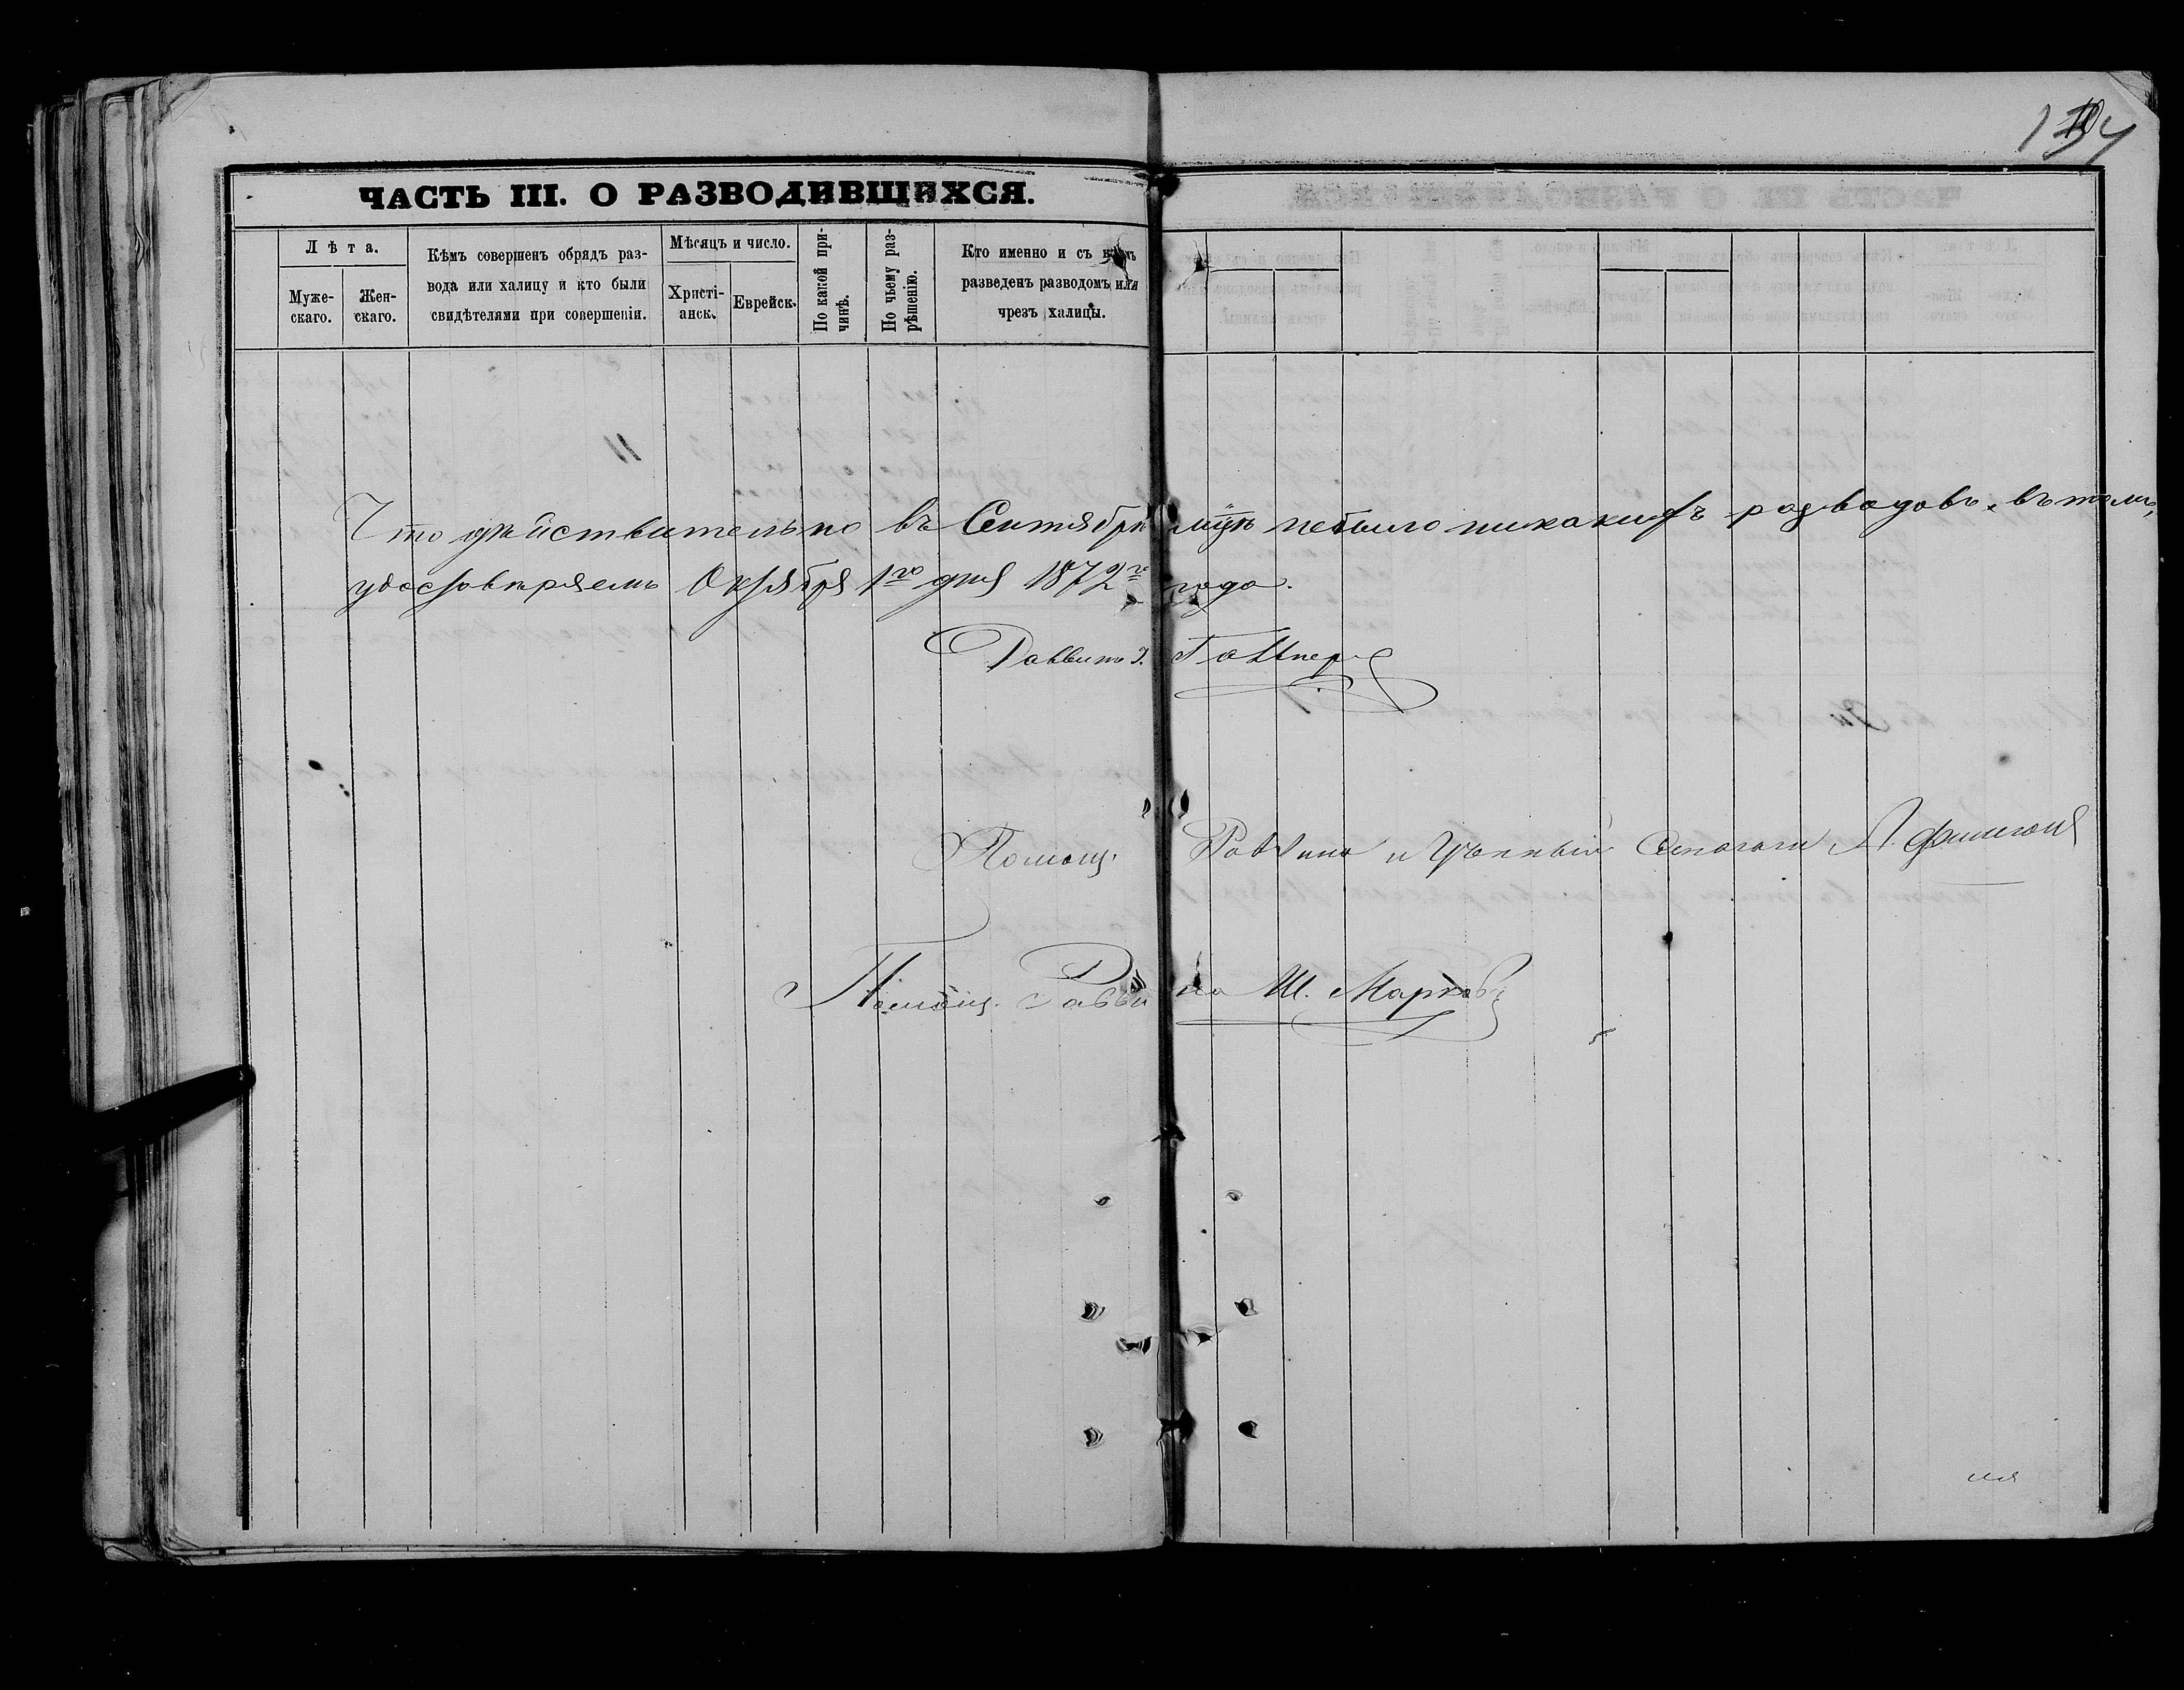 ЧАСТЬ III. О РАЗВОДИВШИХСЯ.
Лѣта.
Муже-
скаго.
Жен-
скаго.
Кѣмъ совершенъ обрядъ раз-
вода или халицу и кто были
свидѣтелями при совершеніи.
Мѣсяцъ и число.
Христі-
анск.
Еврейск.
По какой при-
чинѣ.
По чьему раз-
рѣшенію.
Кто именно и съ кѣмъ
разведенъ разводомъ или
чрезъ халицы.
Что дѣйствительно въ Сентябрѣ м-цѣ небыло никакихъ разводовъ. въ томъ,
удостовѣряемъ Октября 1го дня 1872го года.
Раввинъ
Помощ. Раввина и Ученый
Помощ. Раввина Ш. Марковъ